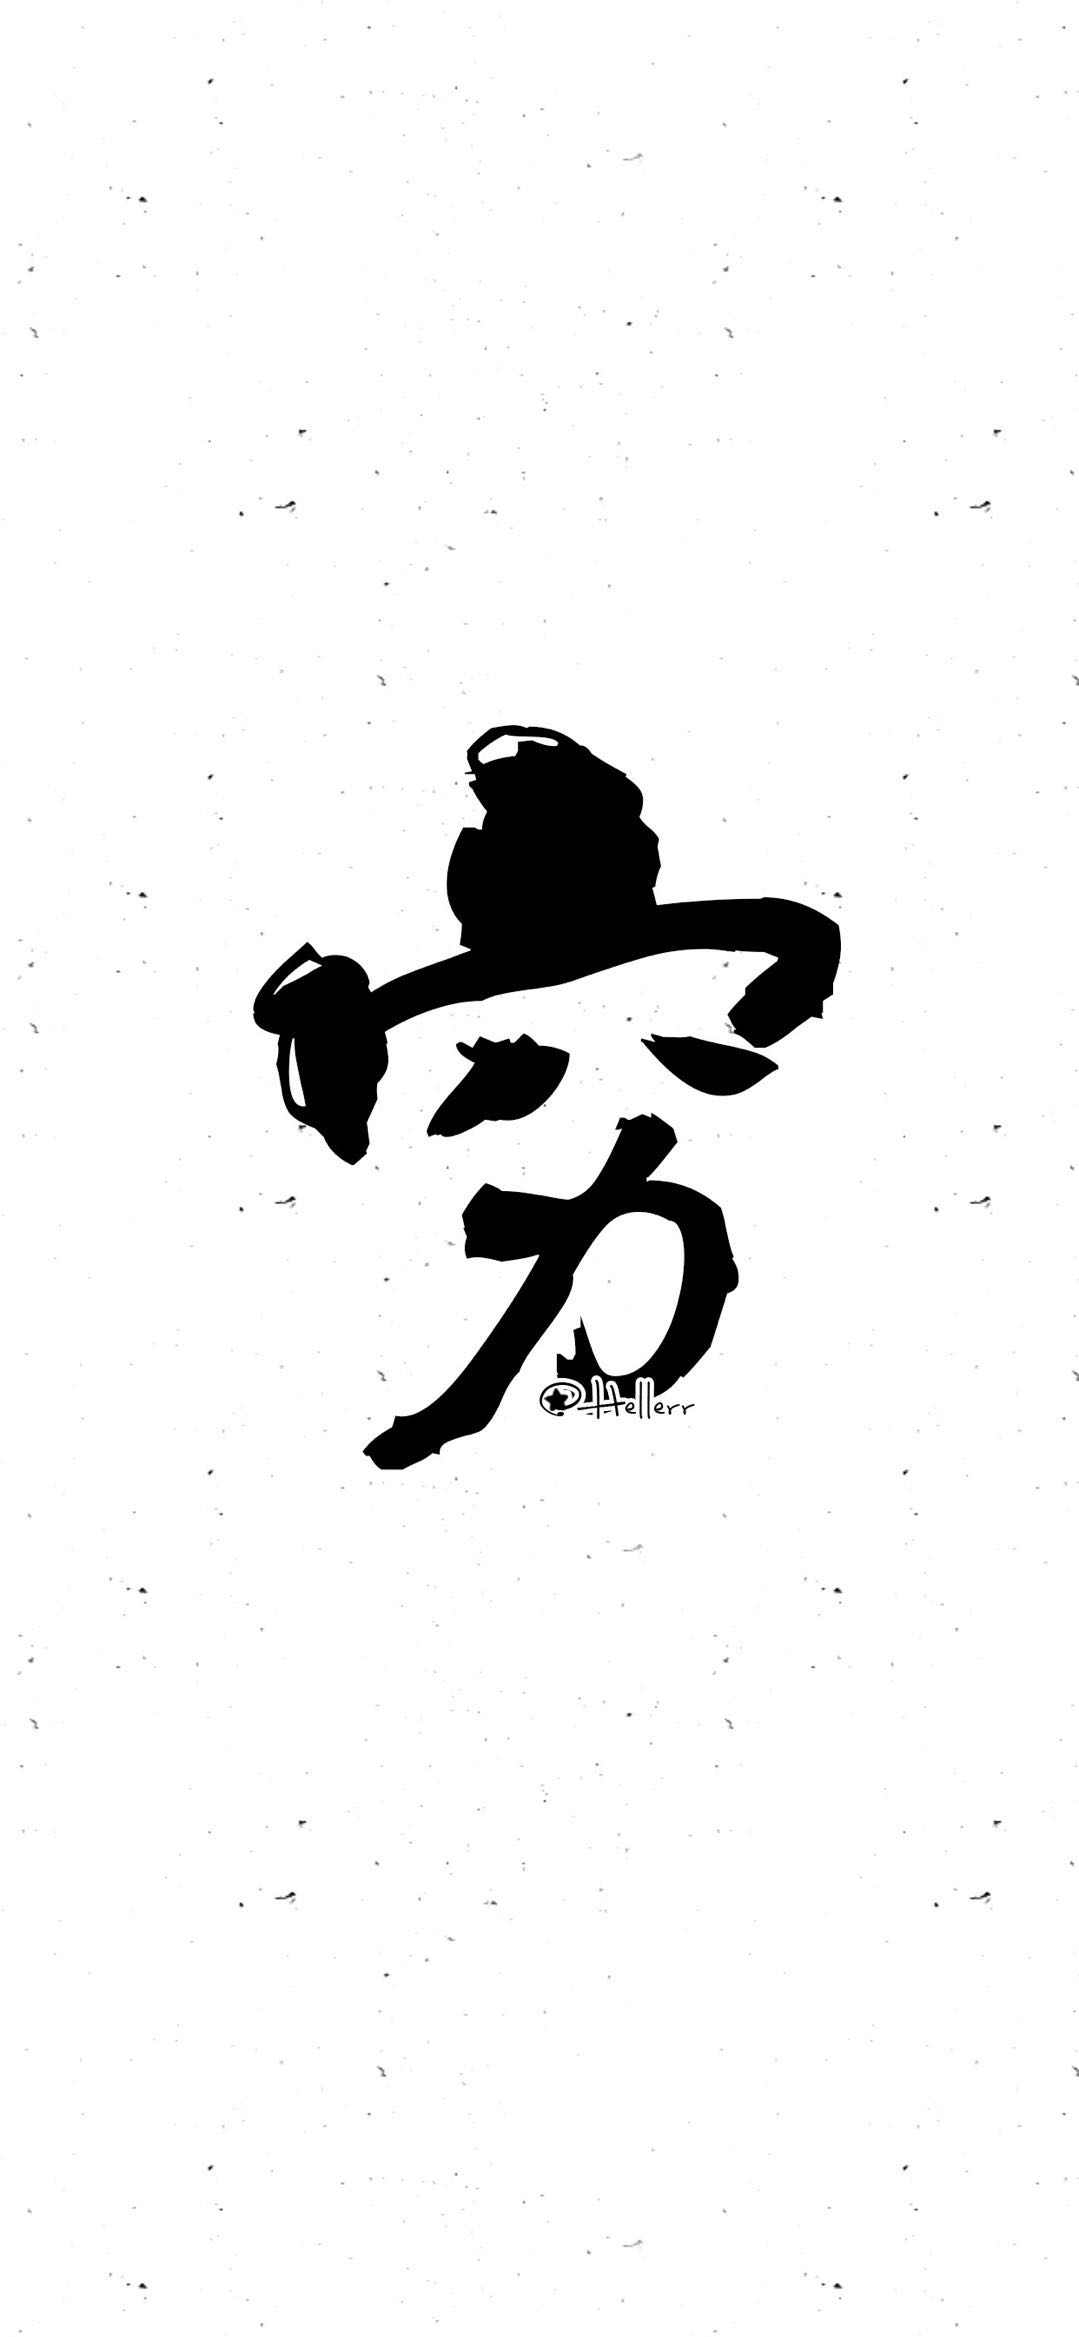 穷
@Hellerr